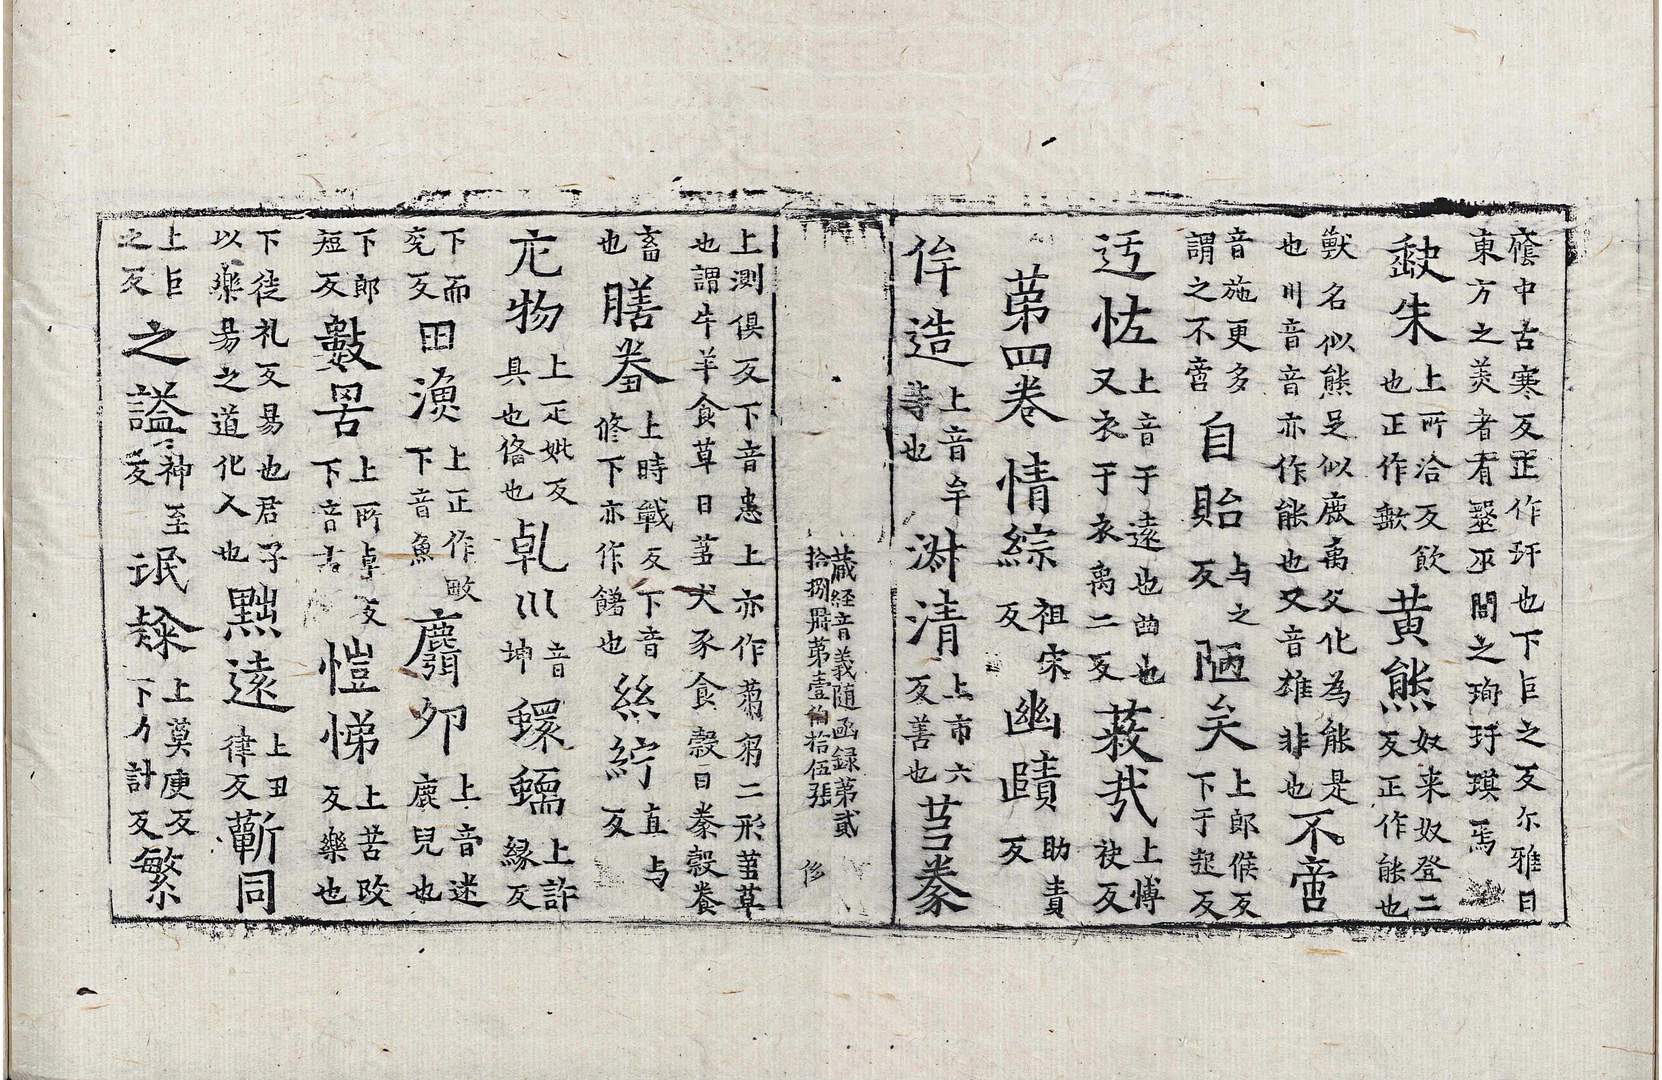 癊中古寒反正作玕也下巨之反尔雅曰
東方之美者有毉巫閭之珣玗琪焉
歃朱 上所洽反飲也正作歃 黄熊 奴来奴登二反正作能也
獸名似熊足似鹿禹父化為能是
也川音音亦作能也又音雄非也 不啻
音施更多謂之不啻 自貽 与之反 陋矣 上郎候反下于起反
迃怪 上音于遠也曲也又衣于衣禹二反 蔽㦲 上愽袂反
苐四卷 情綜 祖宋反 幽賾 助責反
侔造 上音牟等也 淑清 上市六反善也 芻豢
藏経音義随函録苐貳
拾捌冊苐壹伯拾伍張 修
上測俱反下音患上亦作蒭芻二形茧草
也謂牛羊食草曰芻犬豕食穀曰豢穀養
畜也 膳羞 上時戰反下音修下亦作饈也 絲紵 直与反
庀物 上疋婢反具也俻也 乹巛 音坤 蠉蠕 上許緣反
下而兖反 田漁 上正作畋下音魚 麛夘 上音迷鹿兒也
下郎短反 數罟 上所卓反下音古 愷悌 上苦改反樂也
下徒礼反易也君子以樂易之道化人也 黜遠 上丑律反 蘄同
上巨之反 之謚 神至反 氓隸 上莫庚反下力計反 繁